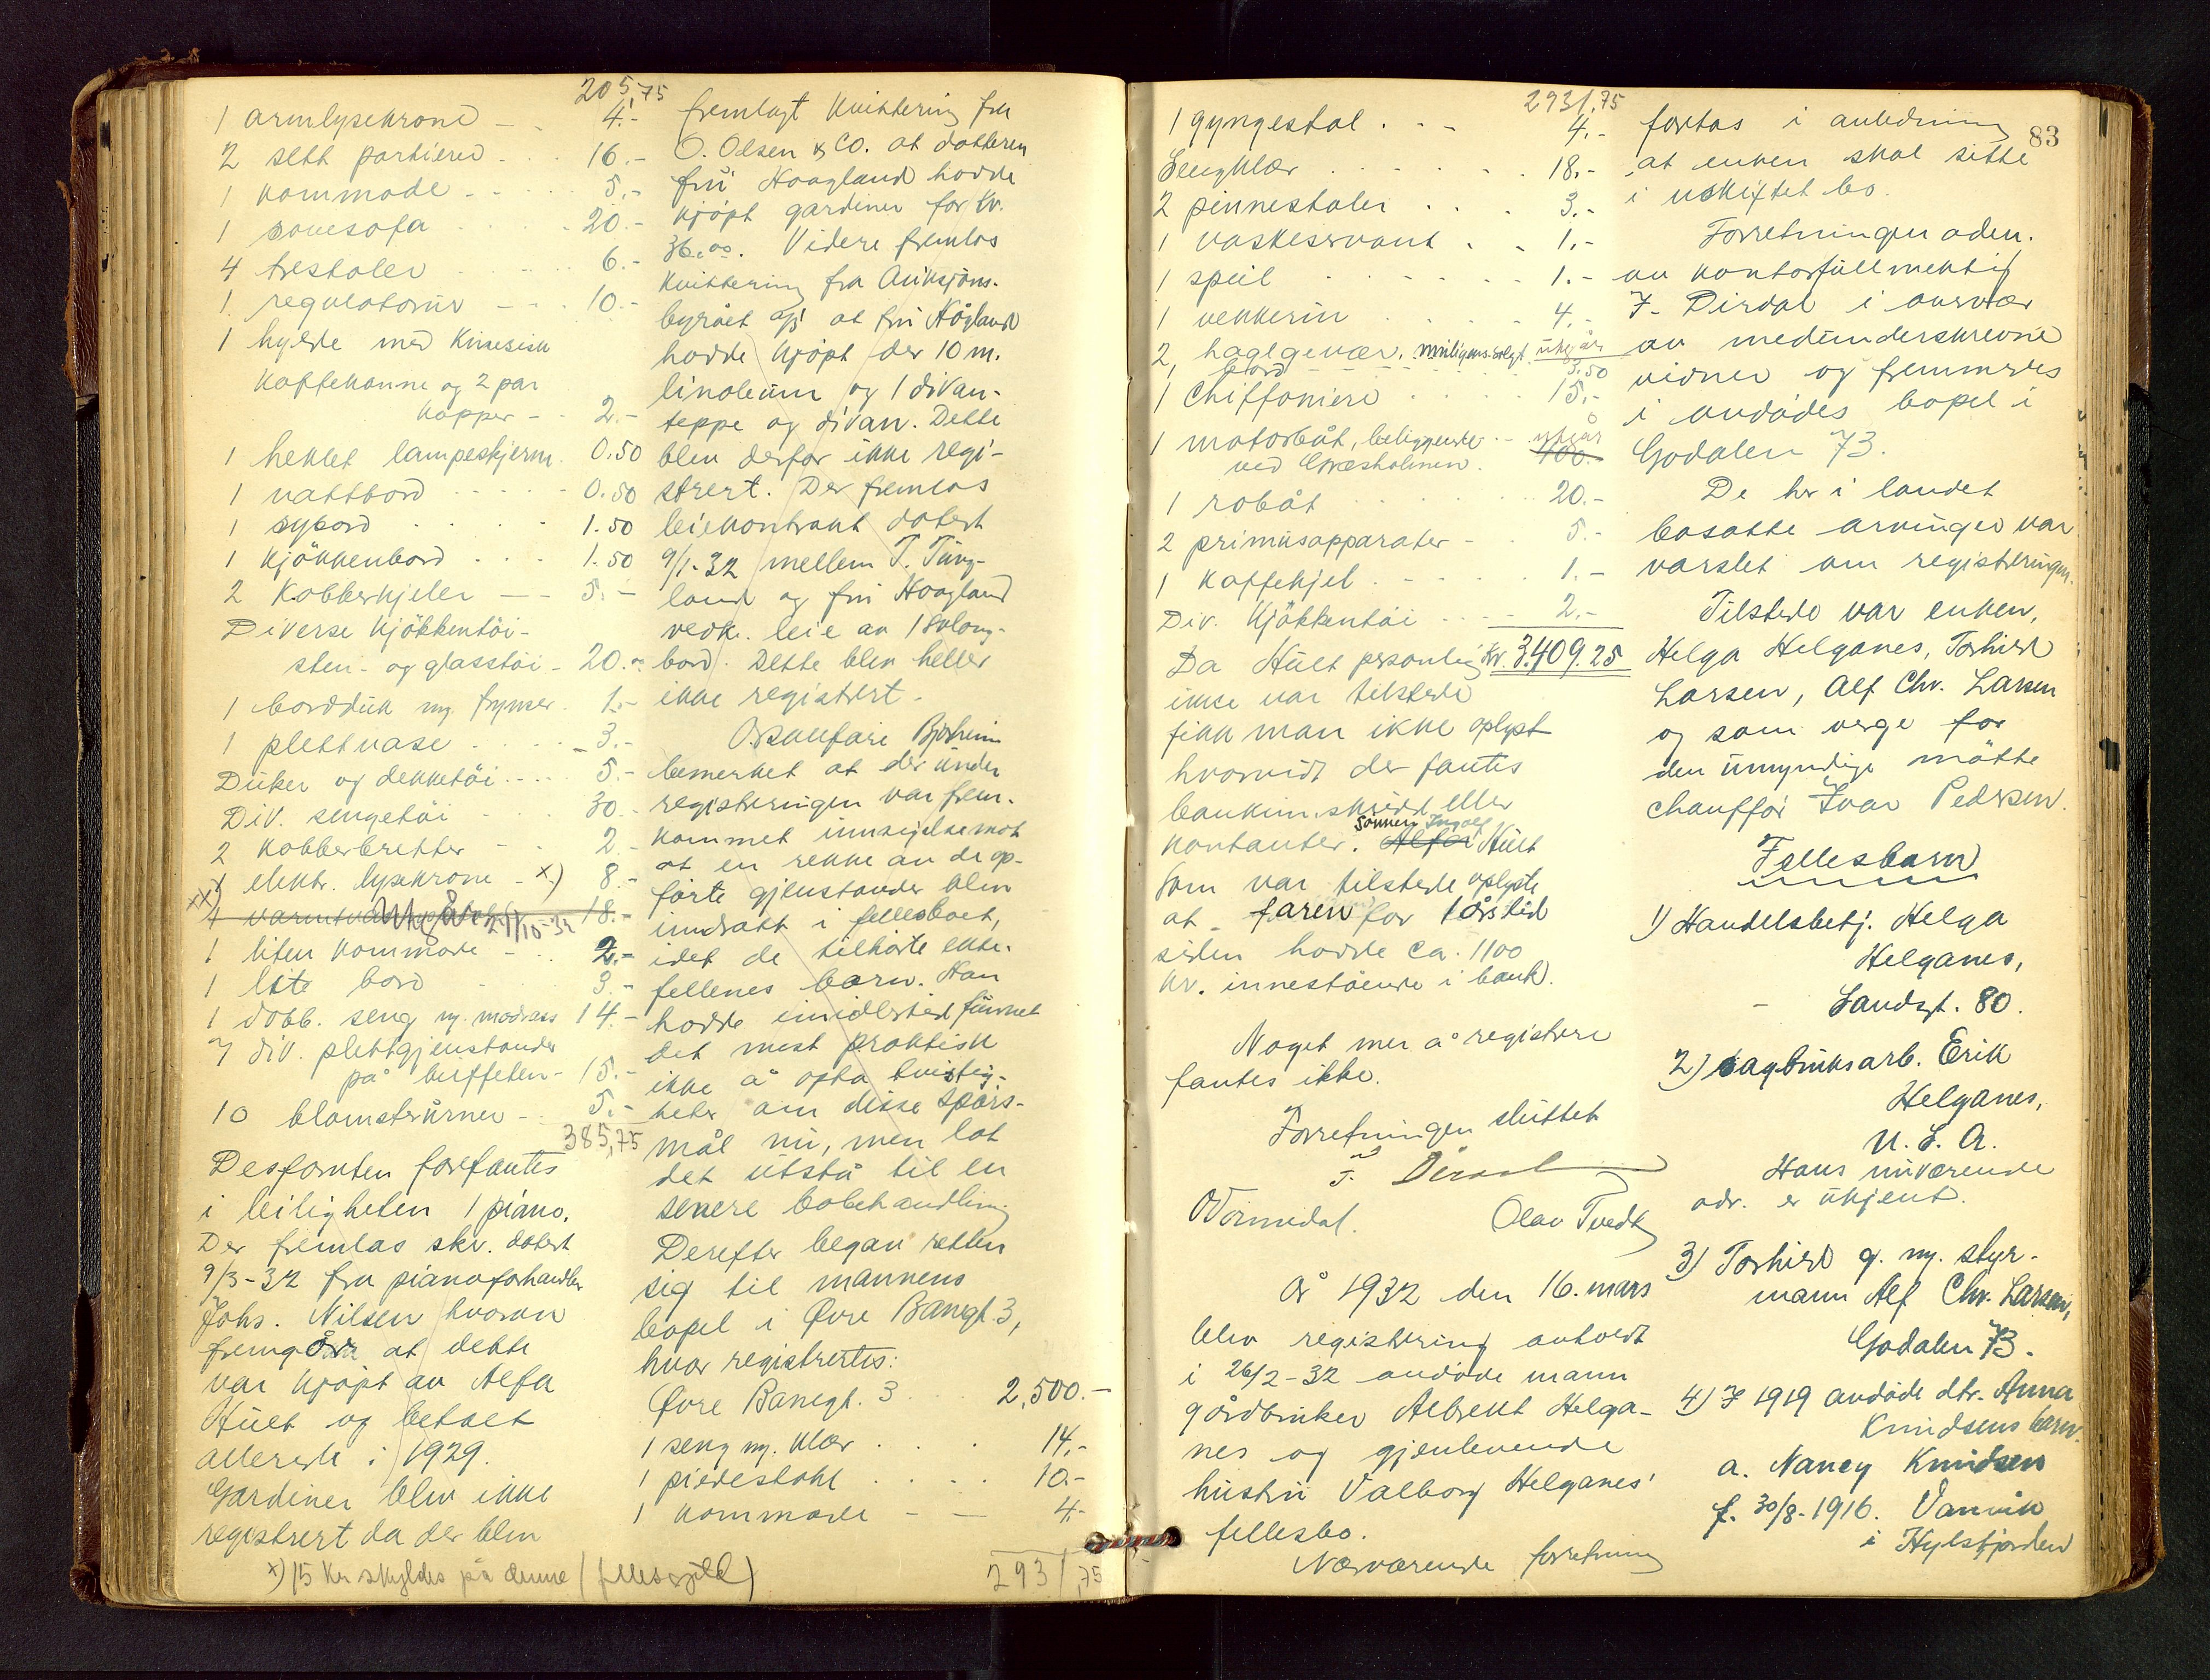 205,75
1 armlysekrone - - 4.-
2 sett portierer - . . 16.-
1 kommode - . . . . 5.-
1 sovesofa . . . . 20.-
4 trestoler . . . . 6.-
1 regulatorur - - . 10.-
1 hylde med kinesisk
kaffekanne og 2 par
kopper - . 2.-
1 heklet lampeskjerm. 0.50
1 nattbord . . . . - 0.50
1 sybord . . . . 1.50
1 kjøkkenbord . . . 1.50
2 kobberkjeler - - 5.-
Diverse kjøkkentøi-
sten- og glasstøi - 20.-
1 bordduk m. frynser. 1.-
1 plettvase . . . . - 3.-
Duker og dekketøi . . . . 5.-
Div. sengetøi . . . 30.-
2 kobberbretter - . 2.-
1 elektr. lysekrone - x) 8.-
xx) 1 Utgår 29/10-32 18.-
1 liten kommode - . . 2.-
1 lite bord . 3.-
1 dobb. seng m. madrass 14.-
7 div. plettgjenstander
på buffeten - 15.-
10 blomsterurner - . 5.-
385,75
Desforuten forefantes
i leiligheten 1 piano.
Der fremlas skr. datert
9/3-32 fra pianoforhandler
Johs. Nilsen hvorav
fremgår at dette
var kjøpt av Alfa
Hult og betalt
allerede i 1929.
Gardiner blev ikke
registrert da der blev
x) 15 kr skyldes på denne (fellesgjeld)
fremlagt kvittering fra
O. Olsen & Co. at datteren
fru Hoagland hadde
kjøpt gardiner for kr.
36.00. Videre fremlas
kvittering fra Auksjons-
byrået A/S at fru Högland
hadde kjøpt der 10 m.
linoleum og 1 divan-
teppe og divan. Dette
blev derfor ikke regi-
strert. Der fremlas
leiekontrakt datert
9/1-32 mellem T. Tung-
land og fru Hoagland
vedk. leie av 1 salong-
bord. Dette blev heller
ikke registrert.
O.r.sakfører Bjorheim
bemerket at der under
registreringen var frem-
kommet innsigelse mot
at en rekke av de op-
førte gjenstander blev
inndratt i fellesboet,
idet de tilhørte ekte-
fellenes barn. Han
hadde imidlertid funnet
det mest praktisk
ikke å opta tvistig-
heter om disse spørs-
mål nu, men lot
det utstå til en
senere bobehandling
Derefter begav retten
sig til mannens
bopel i Øvre Banegt. 3,
hvor registrertes:
Øvre Banegt. 3 . . . 2,500.-
1 seng m. klær . . . 14.-
1 piedestahl . . . . 10.-
1 kommode - - 4.-
2931,75
2931,75
1 gyngestol . . - 4.-
Sengklær . . . . . . 18.-
2 pinnestoler . . . 3.-
1 vaskeservant . . 1.-
1 speil . . . . . 1.-
1 vekkerur . . . . 4.-
2 haglgevær, muligens solgt utgår
1 bord - - - - - 3.50
1 Chiffoniere . . . . 15.-
1 motorbåt, beliggende . - utgår
ved Græsholmen. 400.-
1 robåt . . . . . 20.-
2 primusapparater - . 5.-
1 kaffekjel . - . . . 1.-
Div. kjøkkentøi . . - 2.-
Kr. 3.409.25
Da Hult personlig
ikke var tilstede
fikk man ikke oplyst
hvorvidt der fantes
bankinnskudd eller
kontanter. Alfa sønnen Ingolf Hult
som var tilstede oplyste
at faren for 1 årstid
siden hadde ca. 1100
kr. innestående i bank.
Noget mer å registrere
fantes ikke.
Forretningen sluttet
F. Dirdal
Olav Tvedt
År 1932 den 16. mars
blev registrering avholdt
i 26/2-32 avdøde mann
gårdbruker Albrekt Helga-
nes og gjenlevende
hustru Valborg Helganes'
fellesbo.
Nærværende forretning
83
foretas i anledning
at enken skal sitte
i uskiftet bo.
Forretningen adm.
av kontorfullmektig
F. Dirdal i overvær
av medunderskrevne
vidner og fremmedes
i avdødes bopel i
Godalen 73.
De her i landet
bosatte arvinger var
varslet om registreringen.
Tilstede var enken,
Helga Helganes, Torhild
Larsen, Alf Chr. Larsen
og som verge for
den umyndige møtte
chauffør Ivar Pedersen.
Fellesbarn
1) Handelsbetj. Helga
Helganes,
- Sandsgt. 80.
2) sagbruksarb. Erik
Helganes,
U. S. A.
Hans nuværende
adr. er ukjent.
3) Torhild g. m. styr-
mann Alf Chr. Larsen,
Godalen 73.
4) I 1919 avdøde dtr. Anna
Knudsens barn.
a. Nancy Knudsen
f. 30/8-1916. Vanvik
i Hylsfjorden